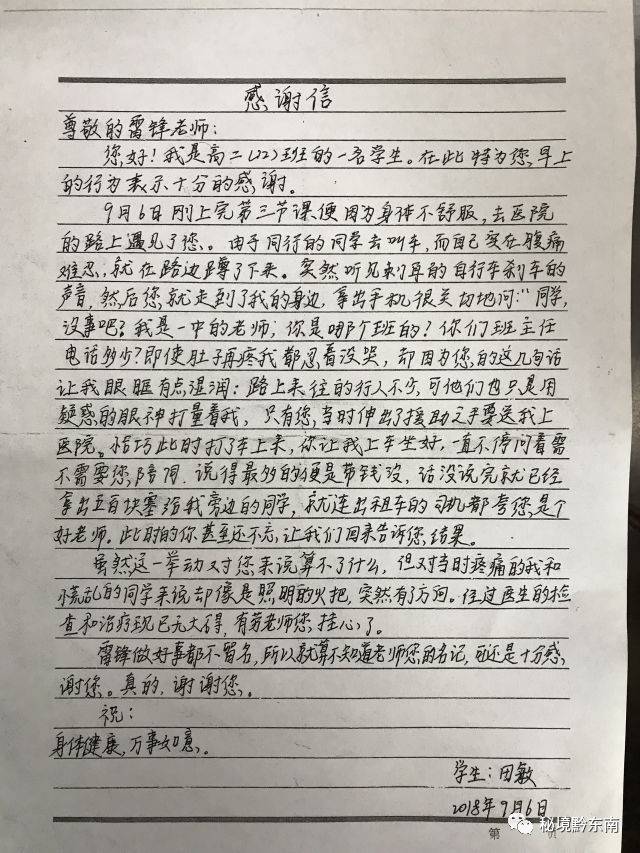 感谢信
尊敬的雷锋老师：
您好！我是高二(22)班的一名学生。在此特为您早上
的行为表示十分的感谢。
9月6日刚上完第三节课便因为身体不舒服，去医院
的路上遇见了您。由于同行的同学去叫车，而自己实在腹痛
难忍，就在路边蹲了下来。突然听见刺耳的自行车刹车的
声音，然后您就走到了我的身边，拿出手机很关切地问："同学，
没事吧？我是一中的老师，你是哪个班的？你们班主任
电话多少？即使肚子再疼我都忍着没哭，却因为您的这几句话
让我眼眶有点湿润：路上来往的行人不少，可他们也只是用
疑惑的眼神打量着我，只有您，当时伸出了援助之手要送我上
医院。恰巧此时打了车上来，你让我上车坐好，一直不停问着需
不需要您陪同，说得最多的便是带钱没，话没说完就已经
拿出五百块塞给我旁边的同学，就连出租车的司机都夸您是个
好老师。此时的你甚至还不忘让我们回来告诉您结果。
虽然这一举动对您来说算不了什么，但对当时疼痛的我和
慌乱的同学来说却像是照明的火把，突然有了方向。经过医生的检
查和治疗现已无大碍，有劳老师您挂心了。
雷锋做好事都不留名，所以就算不知道老师您的名记，可还是十分感
谢您。真的，谢谢您。
祝：
身体健康，万事如意。
学生：田敏
2018年9月6日
第 页
秘境黔东南